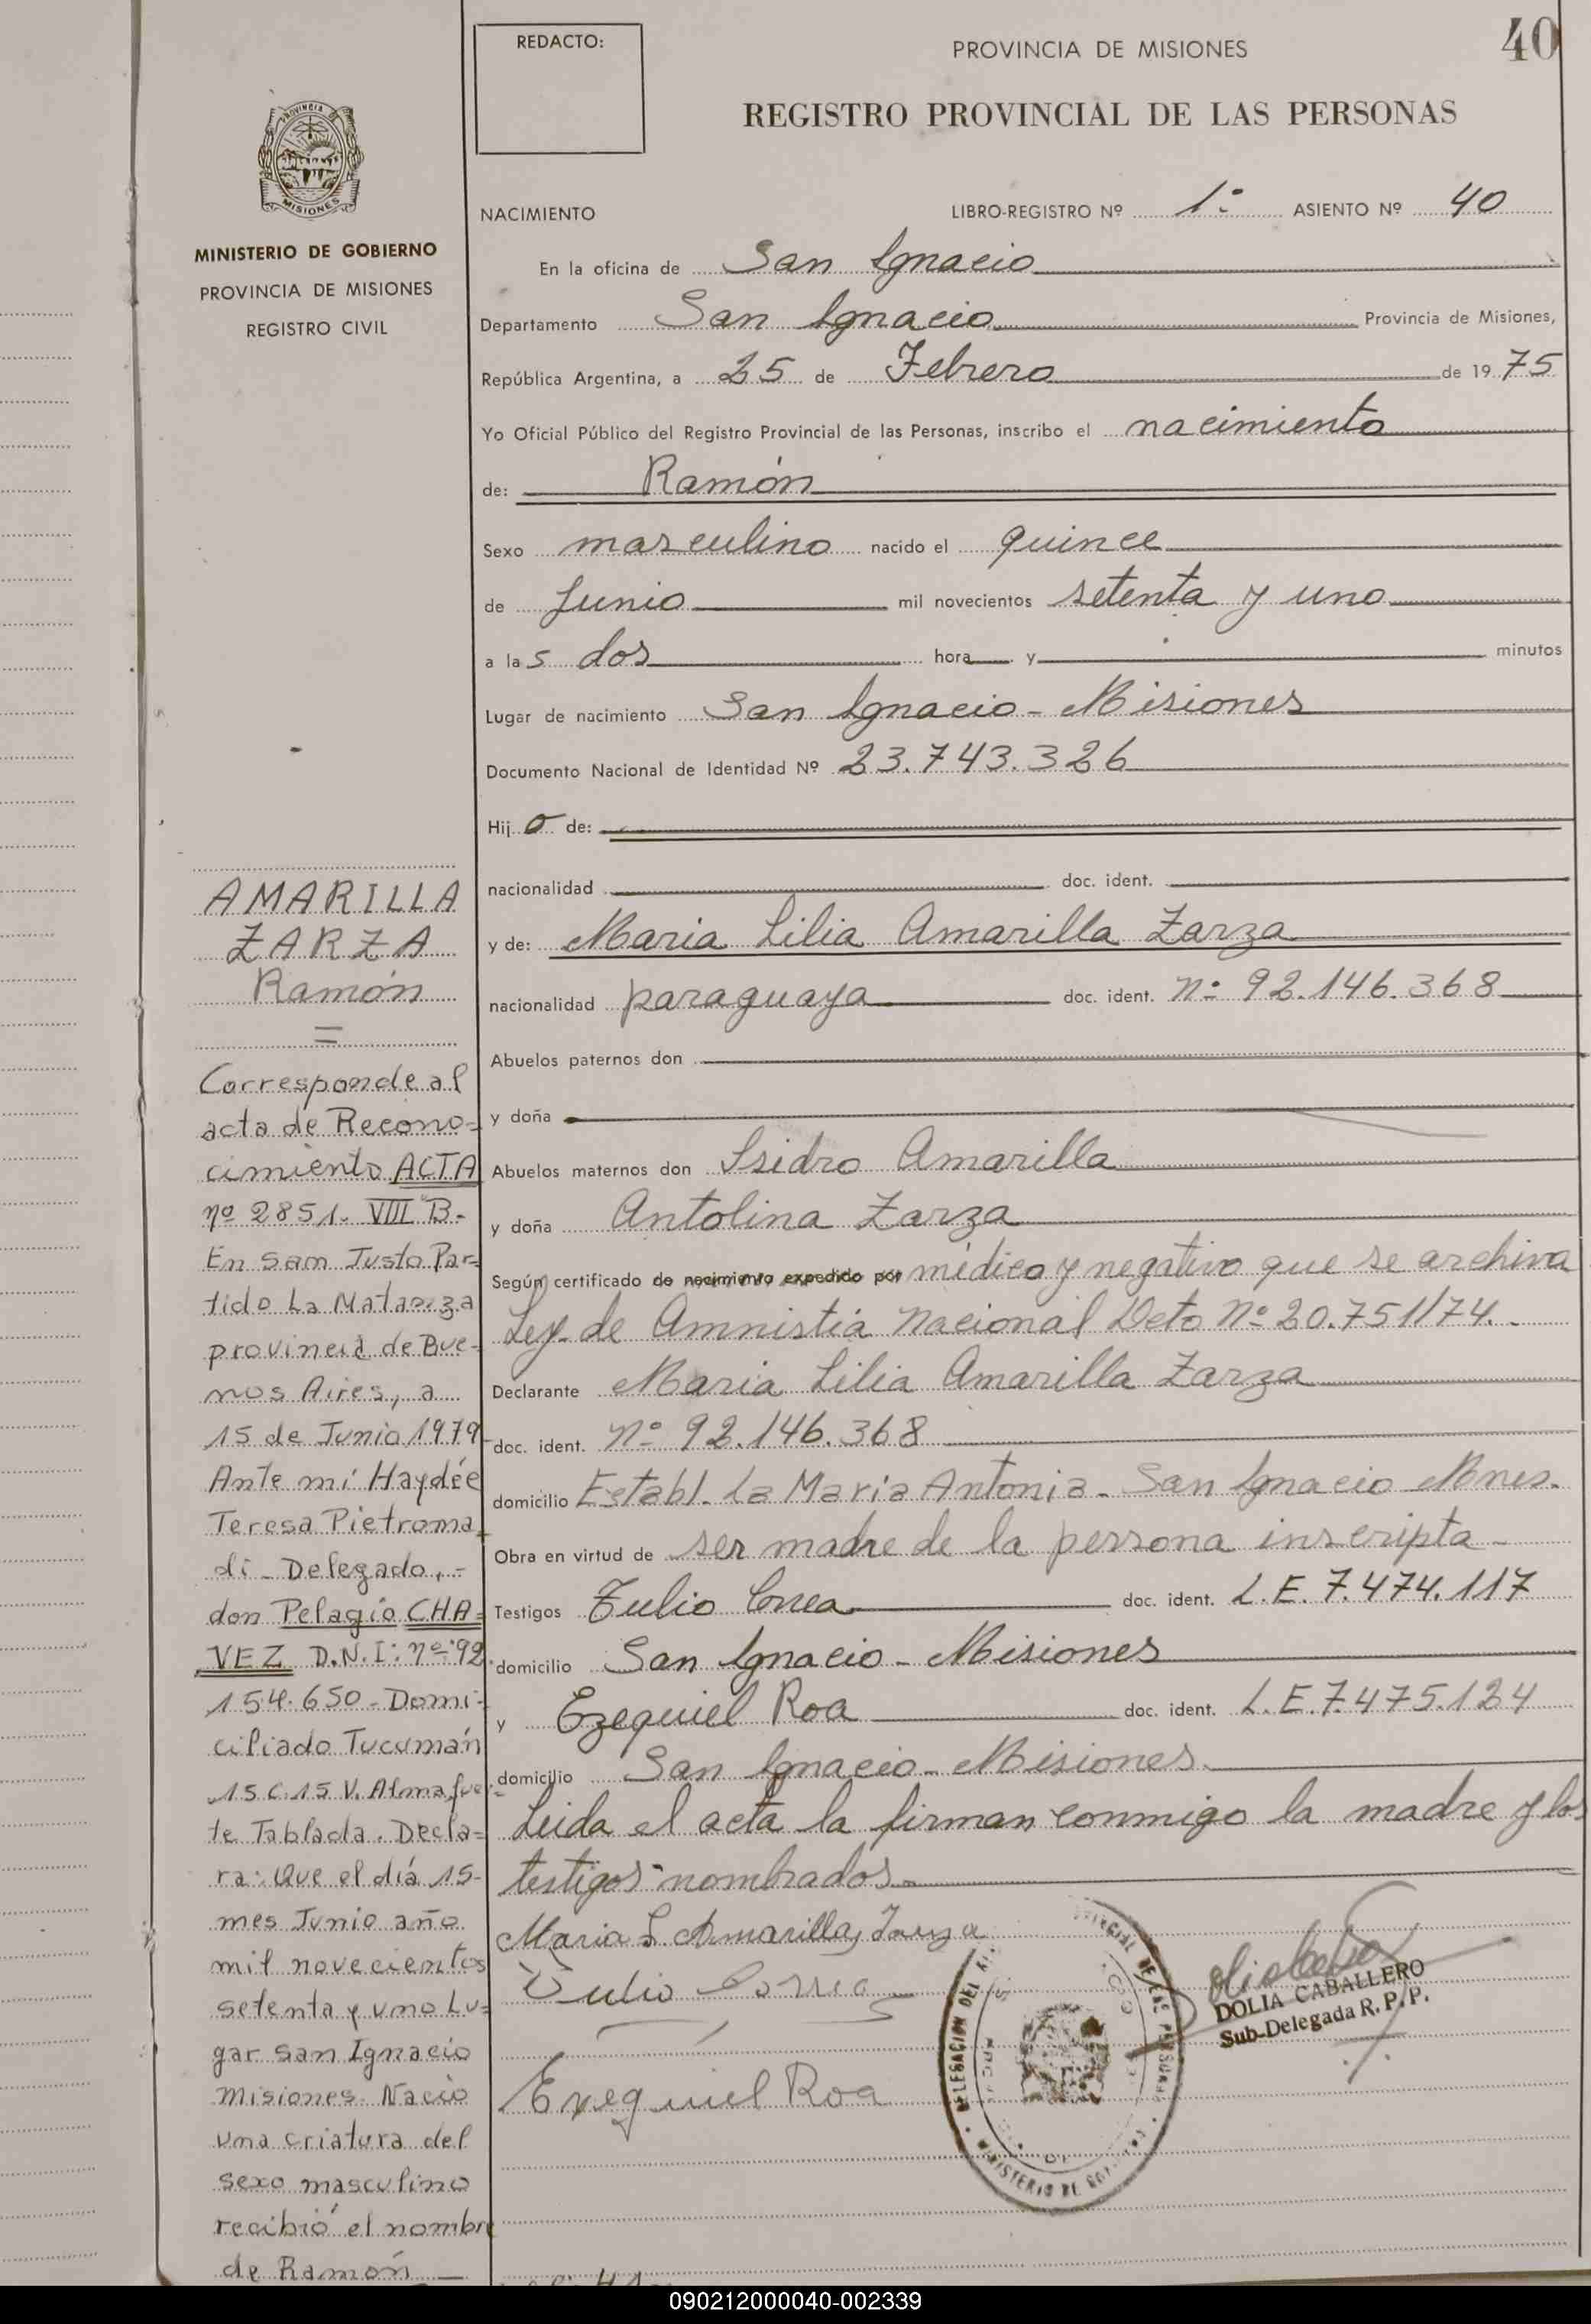 REDACTO:
PROVINCIA DE MISIONES
40
REGISTRO PROVINCIAL DE LAS PERSONAS
PROVINCIA
MISIONES
MINISTERIO DE GOBIERNO
PROVINCIA DE MISIONES
REGISTRO CIVIL
NACIMIENTO LIBRO-REGISTRO Nº 1º ASIENTO Nº 40
En la oficina de San Ignacio
Departamento San Ignacio Provincia de Misiones,
República Argentina, a 25 de Febrero de 1975
Yo Oficial Público del Registro Provincial de las Personas, inscribo el nacimiento
de: Ramón
Sexo masculino nacido el quince
de Junio mil novecientos setenta y uno
a las dos hora y minutos
Lugar de nacimiento San Ignacio - Misiones
Documento Nacional de Identidad Nº 23.743.326
Hijo de:
nacionalidad doc. ident.
y de: Maria Lilia Amarilla Zarza
nacionalidad paraguaya doc. ident. nº 92.146.368
Abuelos paternos don
y doña
Abuelos maternos don Isidro Amarilla
y doña Antolina Zarza
Según certificado de nacimiento expedido por médico y negativo que se archiva
Ley de Amnistia Nacional Dcto Nº 20.751/74.-
Declarante Maria Lilia Amarilla Zarza
doc. ident. nº 92.146.368
domicilio Establ. La Maria Antonia - San Ignacio Mnes.
Obra en virtud de ser madre de la persona inscripta -
Testigos Tulio Correa doc. ident. L.E. 7.474.117
domicilio San Ignacio - Misiones
y Ezequiel Roa doc. ident. L.E. 7.475.124
domicilio San Ignacio - Misiones
Leida el acta la firman conmigo la madre y los
testigos nombrados
Maria L. Amarilla Zarza
Tulio Correa
Ezequiel Roa
DOLIA CABALLERO
Sub-Delegada R. P. P.
AMARILLA
ZARZA
Ramón
=
Corresponde al
acta de Recono-
cimiento ACTA
nº 2851. VIII B.-
En San Justo Par-
tido La Matanza
provincia de Bue-
nos Aires, a
15 de Junio 1979
Ante mí Haydée
Teresa Pietroma
di - Delegado, -
don Pelagio CHA-
VEZ D.N.I: nº 92.
154.650 - Domi-
ciliado Tucumán
15 C. 15 V. Almafuer-
te Tablada. Decla-
ra: Que el día 15-
mes Junio año
mil novecientos
setenta y uno Lu-
gar San Ignacio
Misiones. Nació
una criatura del
sexo masculino
recibió el nombre
de Ramón —
090212000040-002339